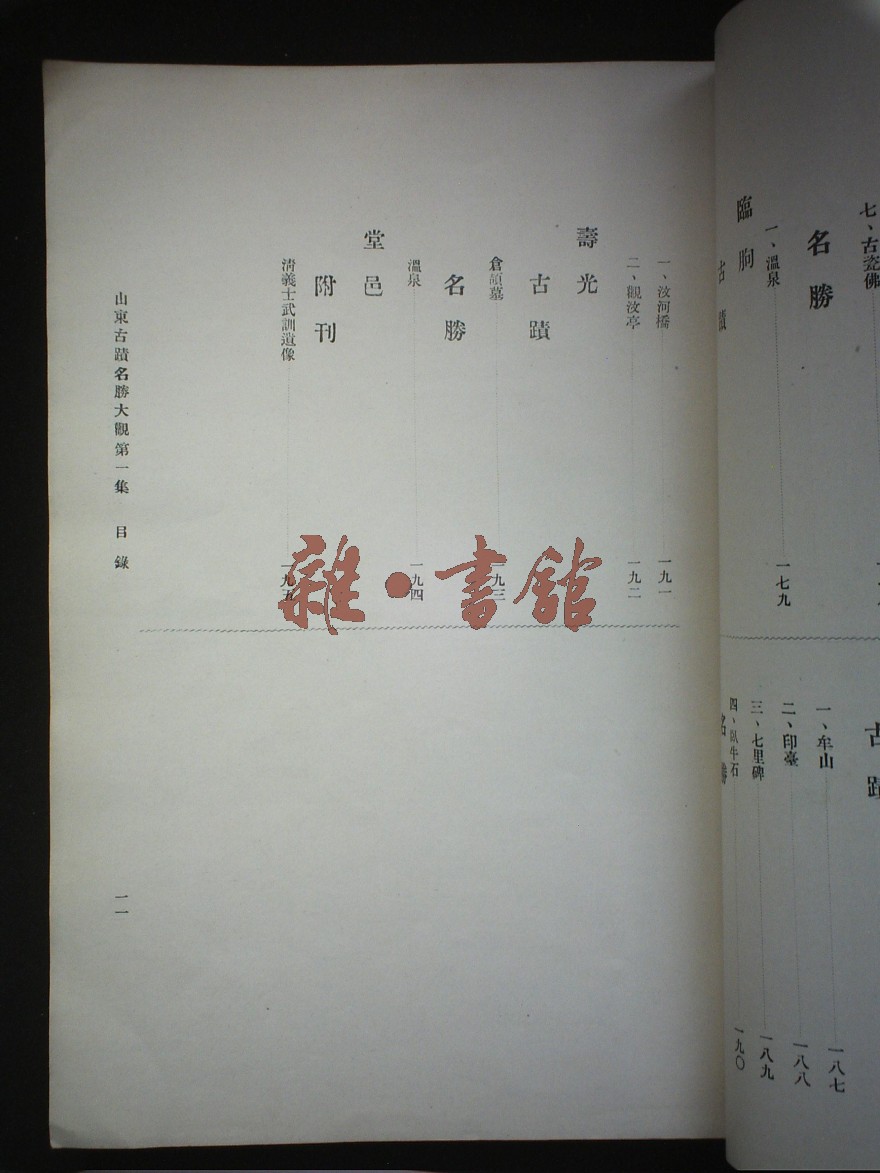 七、古瓷佛
名勝
一、溫泉……一七九
臨朐
古蹟
古蹟
一、牟山……一八七
二、印臺……一八八
三、七里碑……一八九
四、臥牛石……一九〇
名勝
一、汶河橋……一九一
二、觀汶亭……一九二
壽光
古蹟
倉頡墓……一九三
名勝
溫泉……一九四
堂邑
附刊
清義士武訓遺像……一九五
山東古蹟名勝大觀第一集 目錄
一一
雜•書館